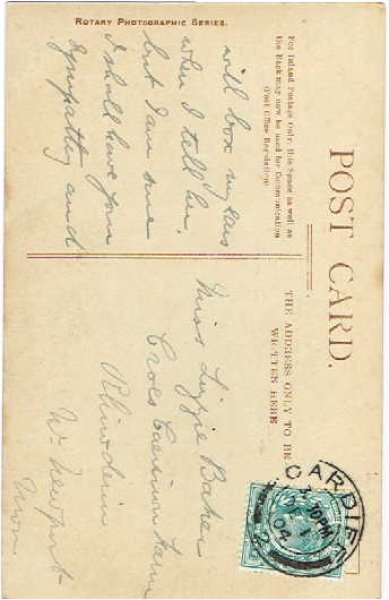 ROTARY PHOTOGRAPHIC SERIES.
POST CARD.
For Inland Postage Only, this Space as well as
the Back may now be used for Communication
(Post Office Regulation)
THE ADDRESS ONLY TO BE
WRITTEN HERE
will box my ears
when I tell her.
but I am sure
I shall have your
sympathy and
Miss Lizzie Baker
Croes Farm
Nr Newport
CARDIFF
04